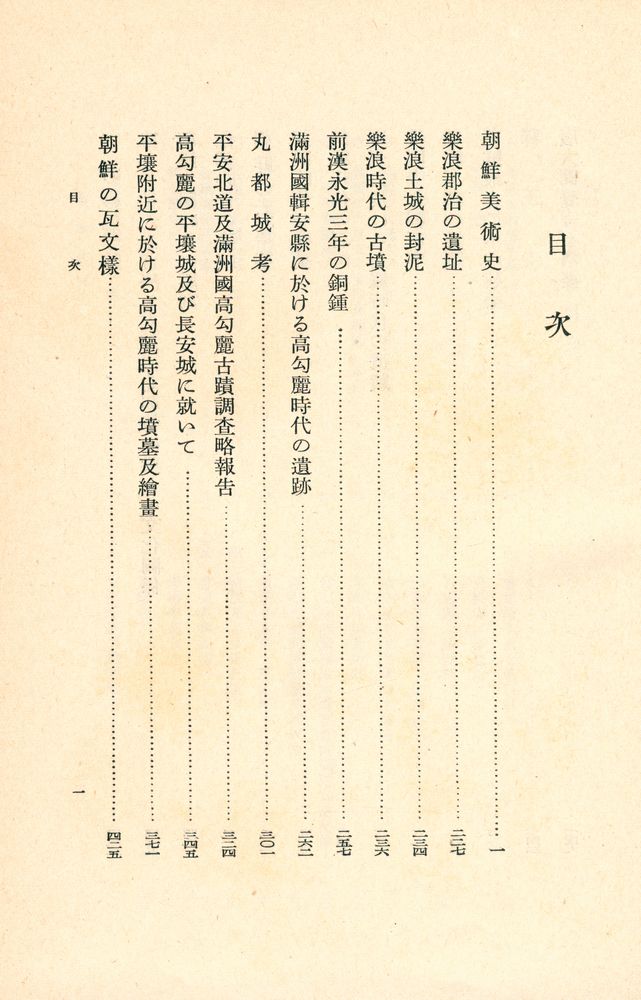 目次
朝鮮美術史…………一
樂浪郡治の遺址…………二二七
樂浪土城の封泥…………二三四
樂浪時代の古墳…………二三六
前漢永光三年の銅鍾…………二五七
滿洲國輯安縣に於ける高勾麗時代の遺跡…………二六二
丸都城考…………三〇一
平安北道及滿洲國高勾麗古蹟調查略報告…………三二四
高勾麗の平壤城及び長安城に就いて…………三四五
平壤附近に於ける高勾麗時代の墳墓及繪畫…………三七一
朝鮮の瓦文樣…………四二五
目次
一